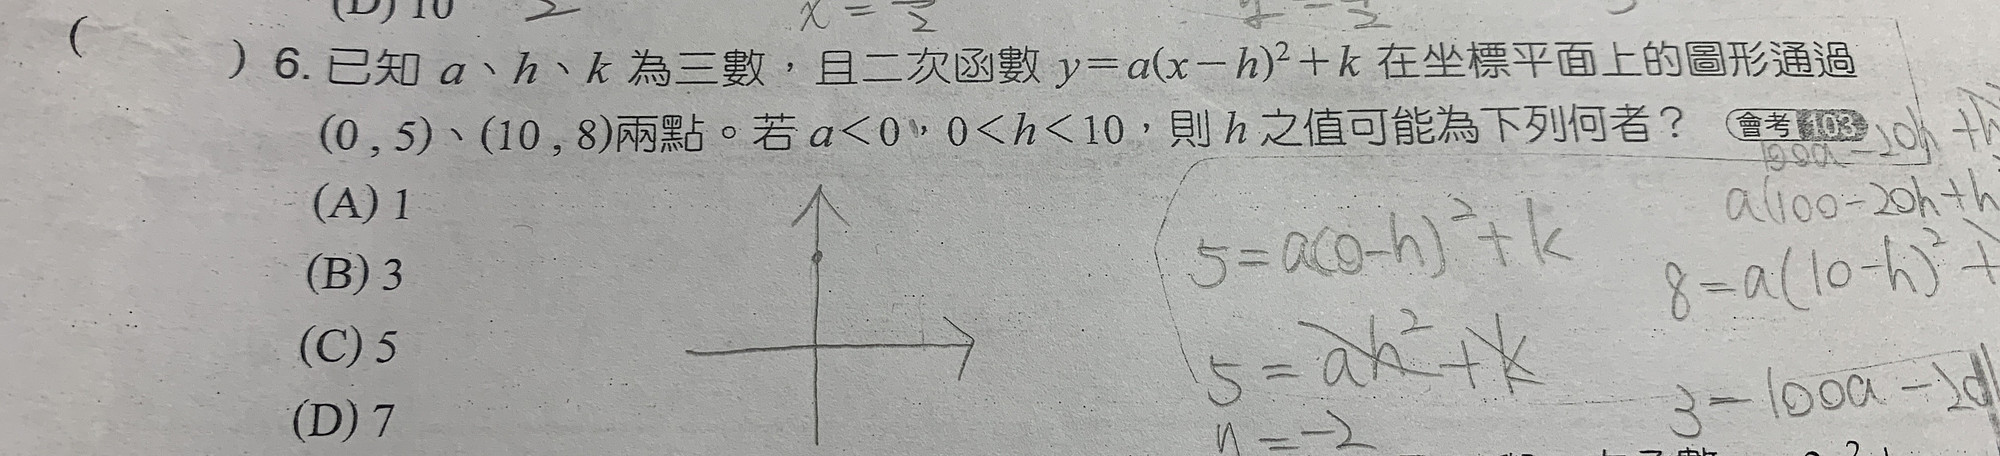 (D) 10
x =
2
( ) 6. 已知 a、h、k 為三數，且二次函數 y=a(x-h)²+k 在坐標平面上的圖形通過
(0 , 5)、(10 , 8)兩點。若 a<0，0<h<10，則 h 之值可能為下列何者？ 會考 103
(A) 1
(B) 3
(C) 5
(D) 7
5=a(0-h)²+k
5=ah²+k
=-2
100a-20h+h
a(100-20h+h
8=a(10-h)²+
3=100a-20